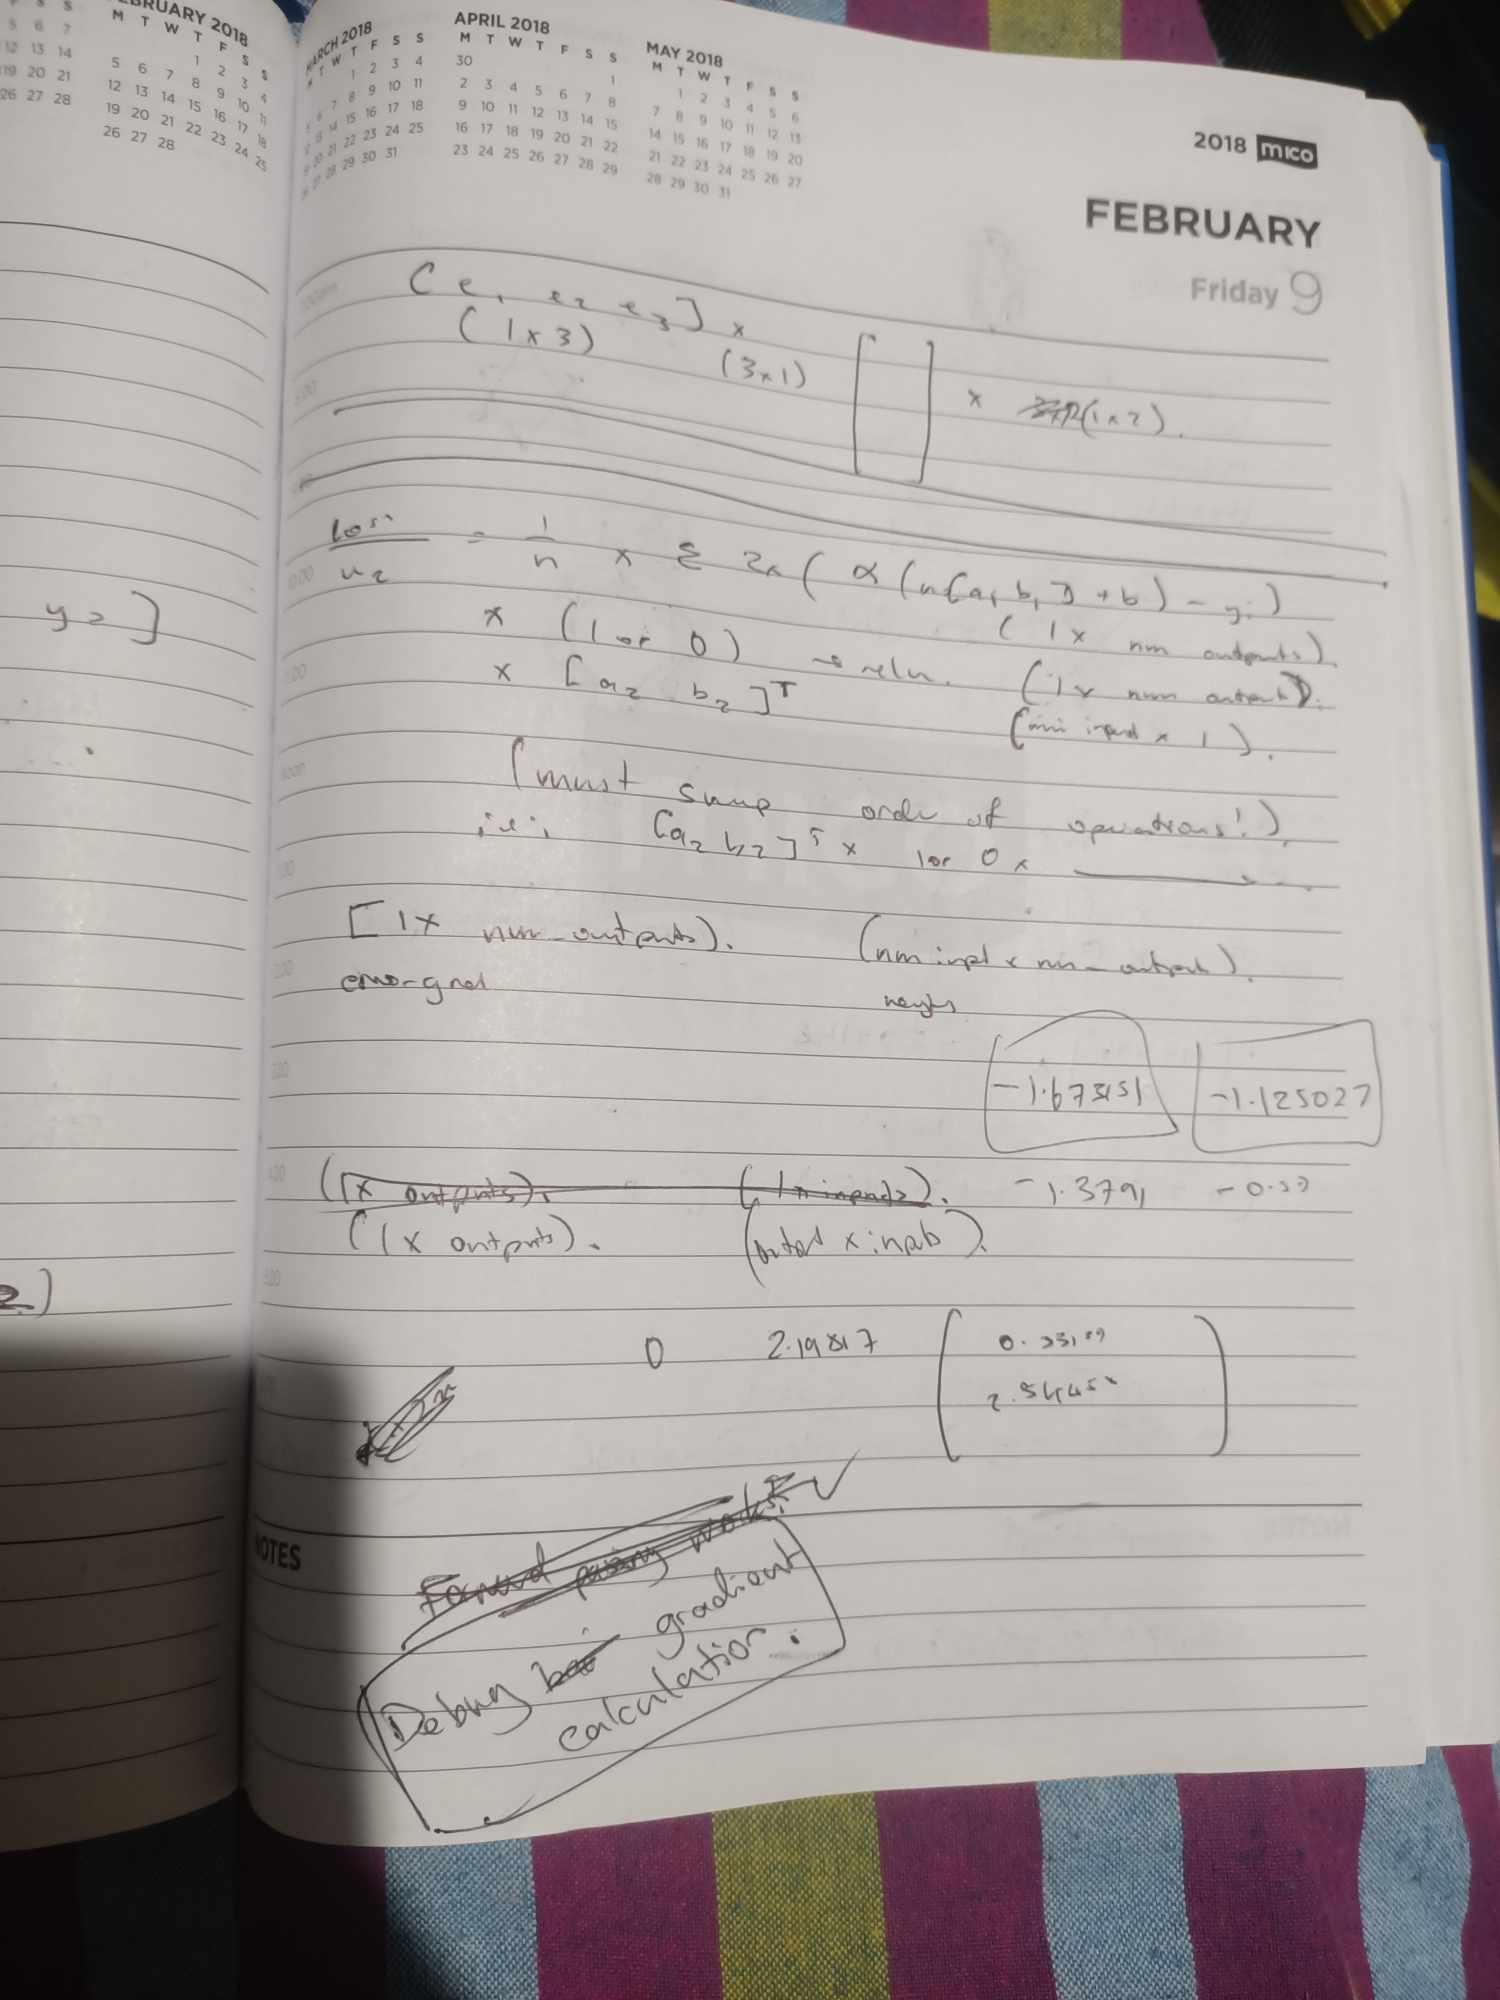 FEBRUARY 2018
M T W T F S S
1 2 3 4
5 6 7 8 9 10 11
12 13 14 15 16 17 18
19 20 21 22 23 24 25
26 27 28
MARCH 2018
M T W T F S S
1 2 3 4
6 7 8 9 10 11
13 14 15 16 17 18
20 21 22 23 24 25
27 28 29 30 31
APRIL 2018
M T W T F S S
30 1
2 3 4 5 6 7 8
9 10 11 12 13 14 15
16 17 18 19 20 21 22
23 24 25 26 27 28 29
MAY 2018
M T W T F S S
1 2 3 4 5 6
7 8 9 10 11 12 13
14 15 16 17 18 19 20
21 22 23 24 25 26 27
28 29 30 31
2018 mico
FEBRUARY
Friday 9
[e1 e2 e3] x
(1x3) (3x1) [ ] x (1x2).
loss = 1/n x Σ 2x( α (n[a1 b1] + b) - yi)
(1x num outputs).
x (1 or 0) → relu. (1x num outputs).
x [a2 b2]ᵀ (num input x 1).
(must swap order of operations!).
i.e. [a2 b2]ᵀ x 1 or 0 x
[1x num_outputs). (num input x num_output).
error-grad weights
-1.125027
(1x outputs). (1x inputs). -1.3791
(1x outputs). (output x inputs).
0 2.19817
Forward passing works! ✓
NOTES
Debug gradient
calculation.
y2]
2)